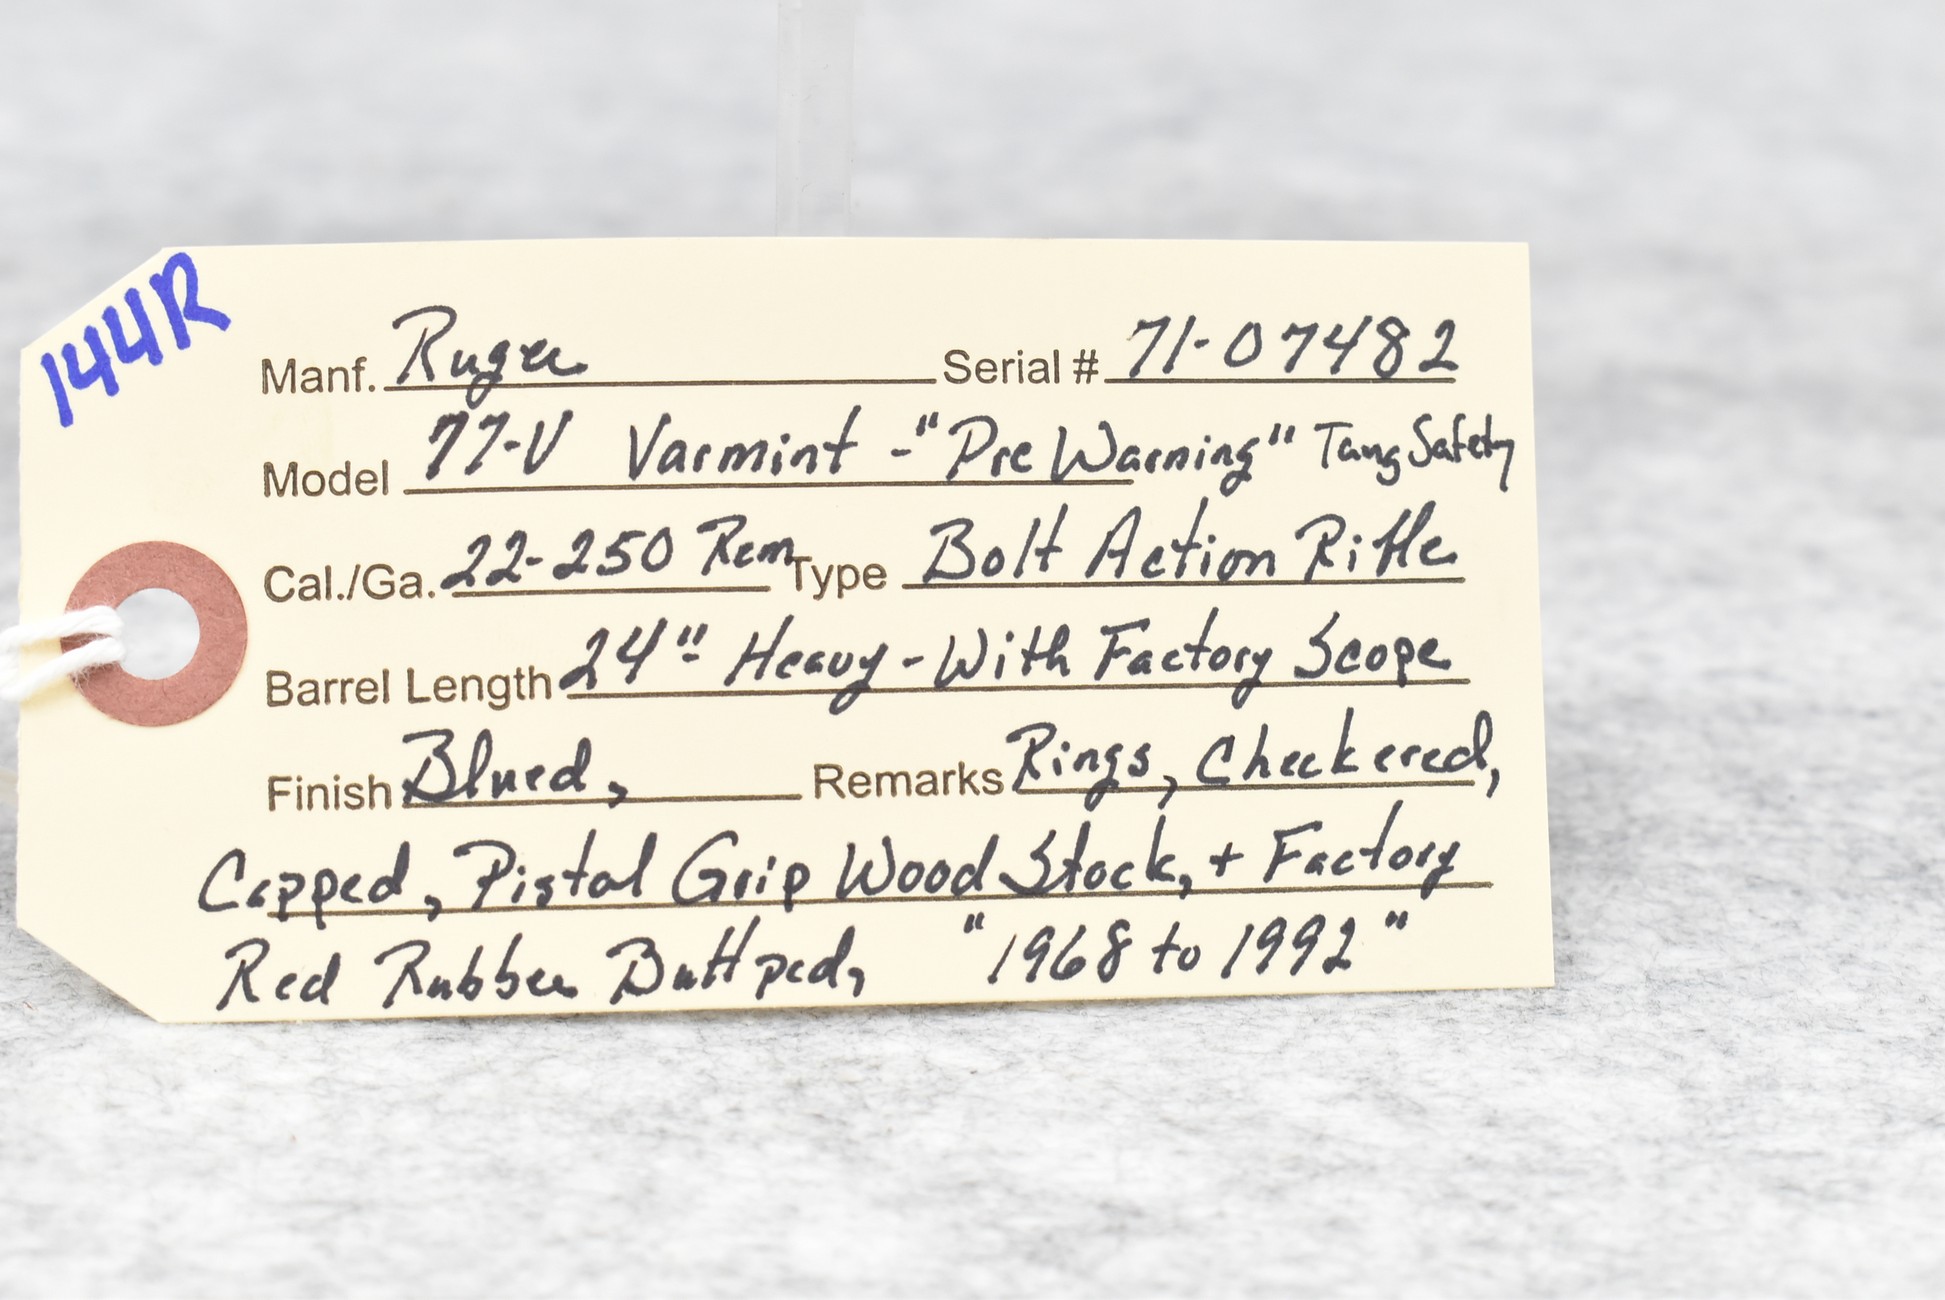 144R
Manf. Ruger Serial # 71-07482
Model 77-V Varmint - "Pre Warning" Tang Safety
Cal./Ga. 22-250 Rem Type Bolt Action Rifle
Barrel Length 24" Heavy - With Factory Scope
Finish Blued, Remarks Rings, Checkered,
Capped, Pistol Grip Wood Stock, + Factory
Red Rubber Buttpad, "1968 to 1992"